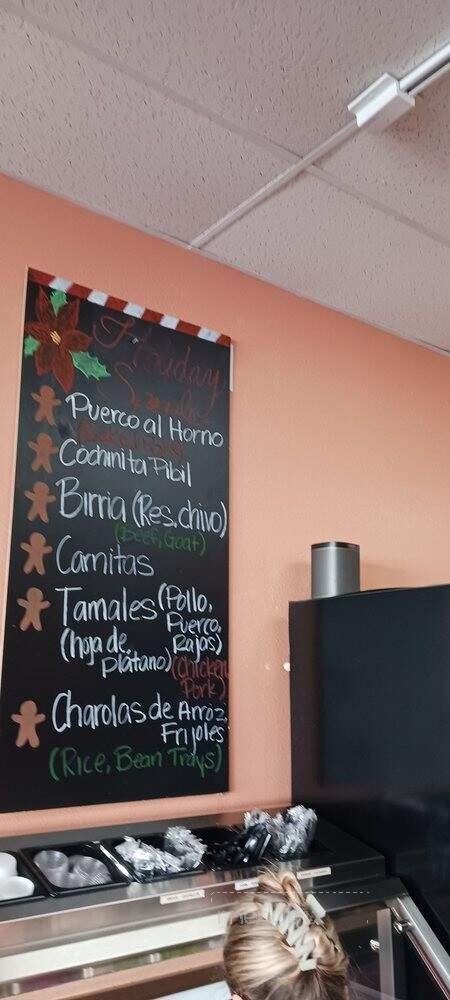 Holiday
Specials
Puerco al Horno
Cochinita Pibil
Birria (Res, chivo)
(Beef, Goat)
Carnitas
Tamales (Pollo,
Puerco,
(hoja de Rajas)
plátano) (Chicken,
Pork)
Charolas de Arroz,
Frijoles
(Rice, Bean Trays)